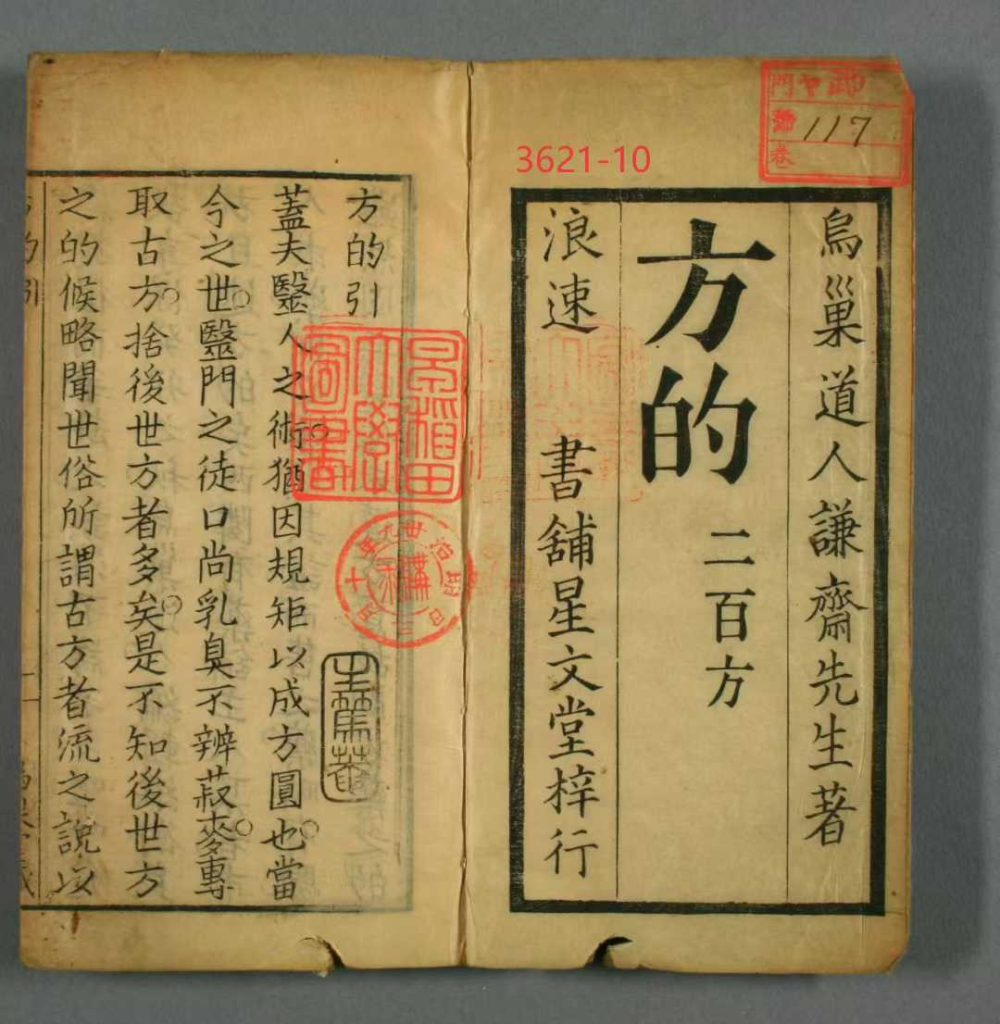 117
3621-10
烏巢道人謙齋先生著
方的
二百方
浪速 書舖星文堂梓行
方的引
蓋夫毉人之術猶因規矩以成方圓也當
今之世毉門之徒口尚乳臭不辨菽麥專
取古方捨後世方者多矣是不知後世方
之的候略聞世俗所謂古方者流之說以
早稻田大學圖書